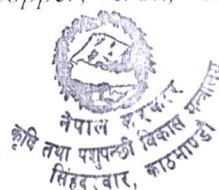 copper,
नेपाल सरकार
कृषि तथा पशुपन्छी विकास मन्त्रालय
सिंहदरबार, काठमाण्डौ